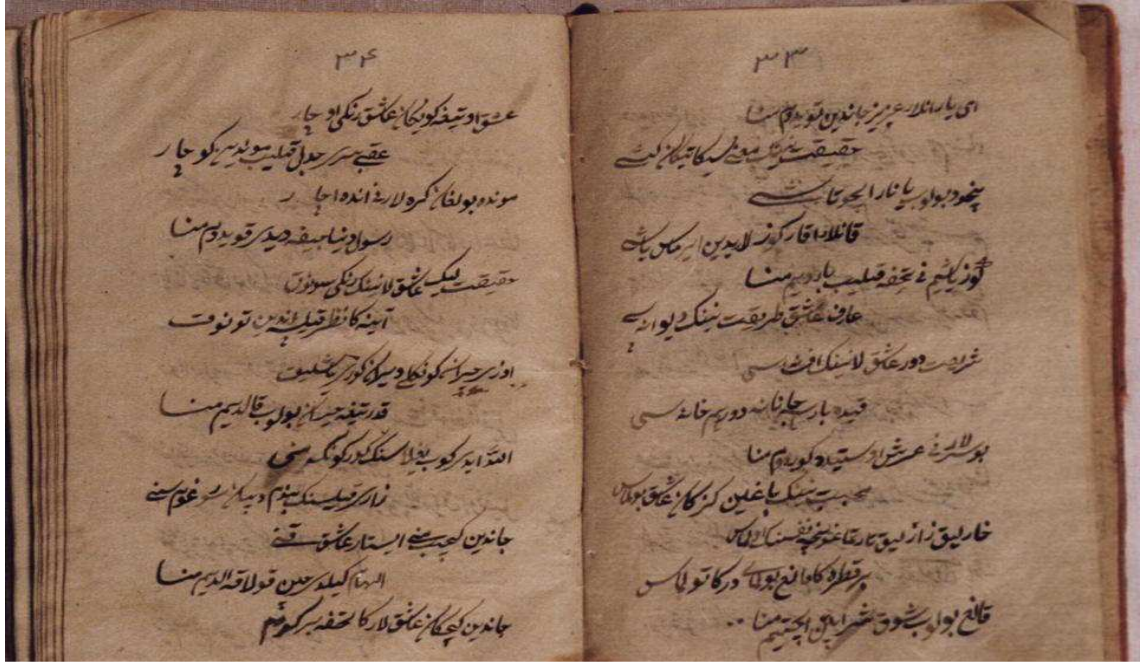 ٣٣
ای یارانلار عزیز جاندین تویدوم منا
حقیقت
بیخود بولوب یانار
قانلار اقار کوزلاریدین
کوز یاشیم نی تحفه قیلیب باردیم منا
عارف عاشق طریقت نینک دیوانه سی
شریعت دور عاشق لانینک
قیده بارسه جانانه دور هم خانه سی
بولارنی عرش اوستیده کوردوم منا
محبت نینک باغین کزکان عاشق بولماس
خارلیق زارلیق تارتماغونچه نفسنک اولماس
بر قطره کا قانع بولمای درکا تولماس
قانع بولوب شوق شرابین ایچتیم منا
٣٤
عشق اوتیغه کویکان عاشق رنکی اوچار
عقبی سری جدل قیلیب موندین کوچار
مونده بولغان کره لارنی انده اچار
رسول دنیا جیفه دیدی قویدوم منا
حقیقت لیک عاشق لانینک رنکی سینوق
آیینه کا نظر قیلسه اندین تونوق
اوزی حیران کونکلی ویران کوزی یاشلیق
قدرتیغه حیران بولوب قالدیم منا
الله ایدی کوب یغلاسنک کورکونک منی
زاری قیلسنک بندم دیبان
جاندین کیچیب منی ایستار عاشق قنی
الهام کیلدی من قولاقه الدیم منا
جاندین کیچکان عاشق لارکا تحفه